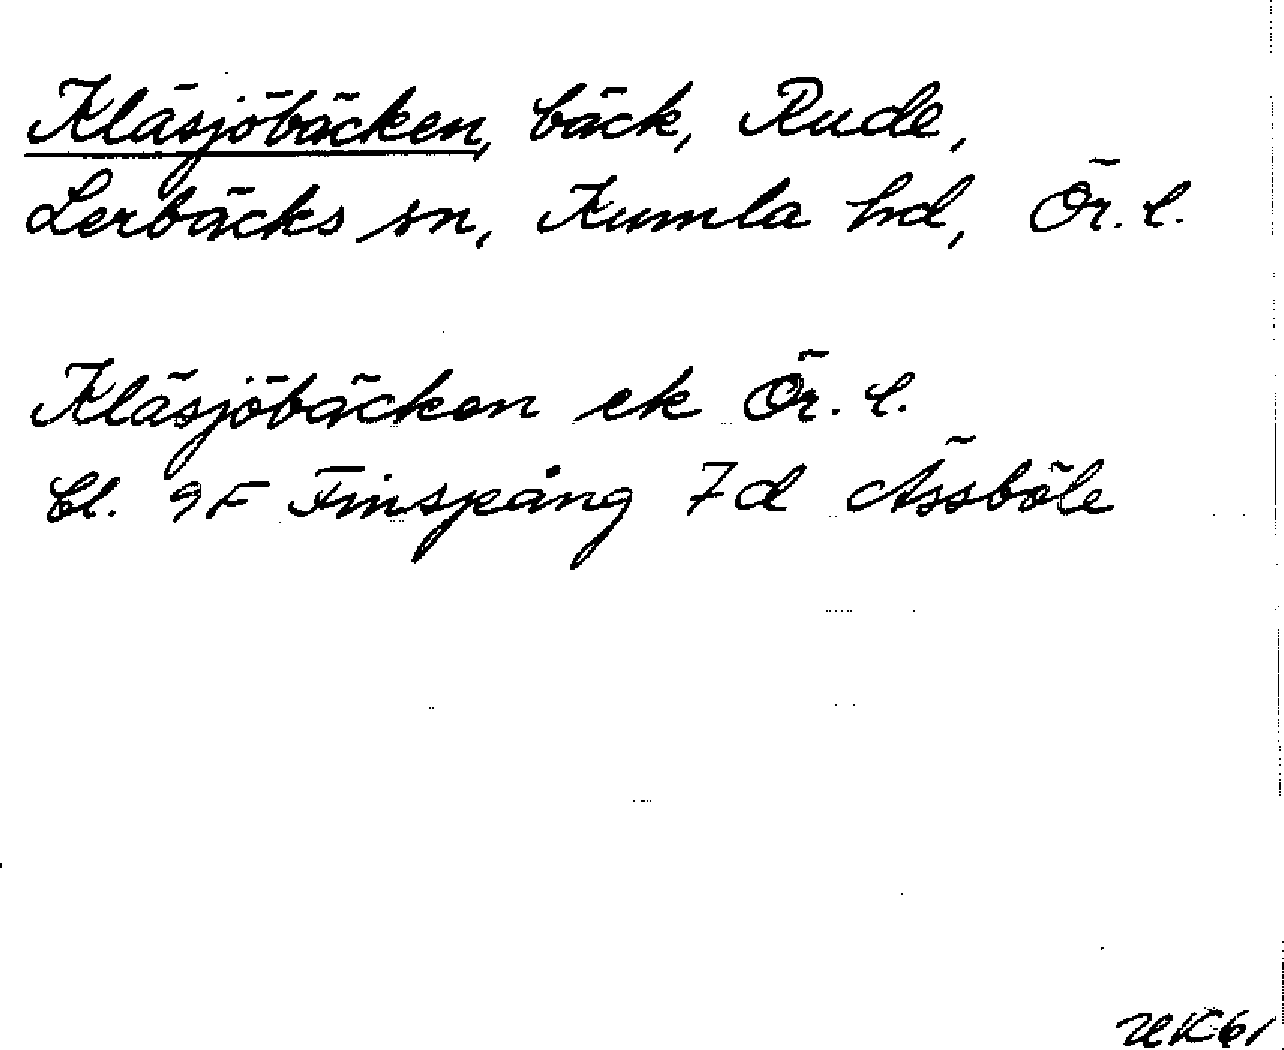 Kläsjöbäcken, bäck, Rude,
Lerbäcks sn, Kumla hd, Ör. l.
Kläsjöbäcken ek Ör. l.
bl. 9F Finspång 7d Ässböle
UK61